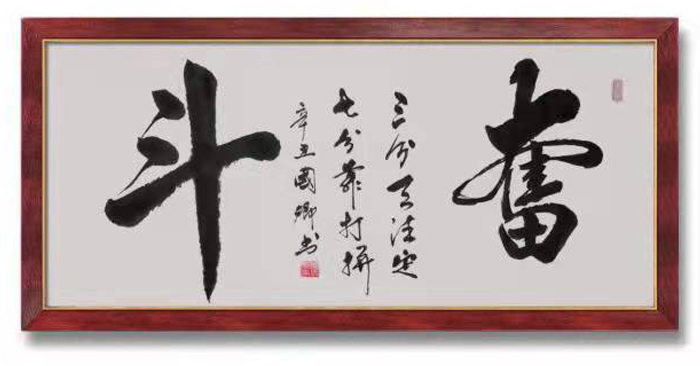 奮
三分天注定
七分靠打拼
斗
辛丑國卿书